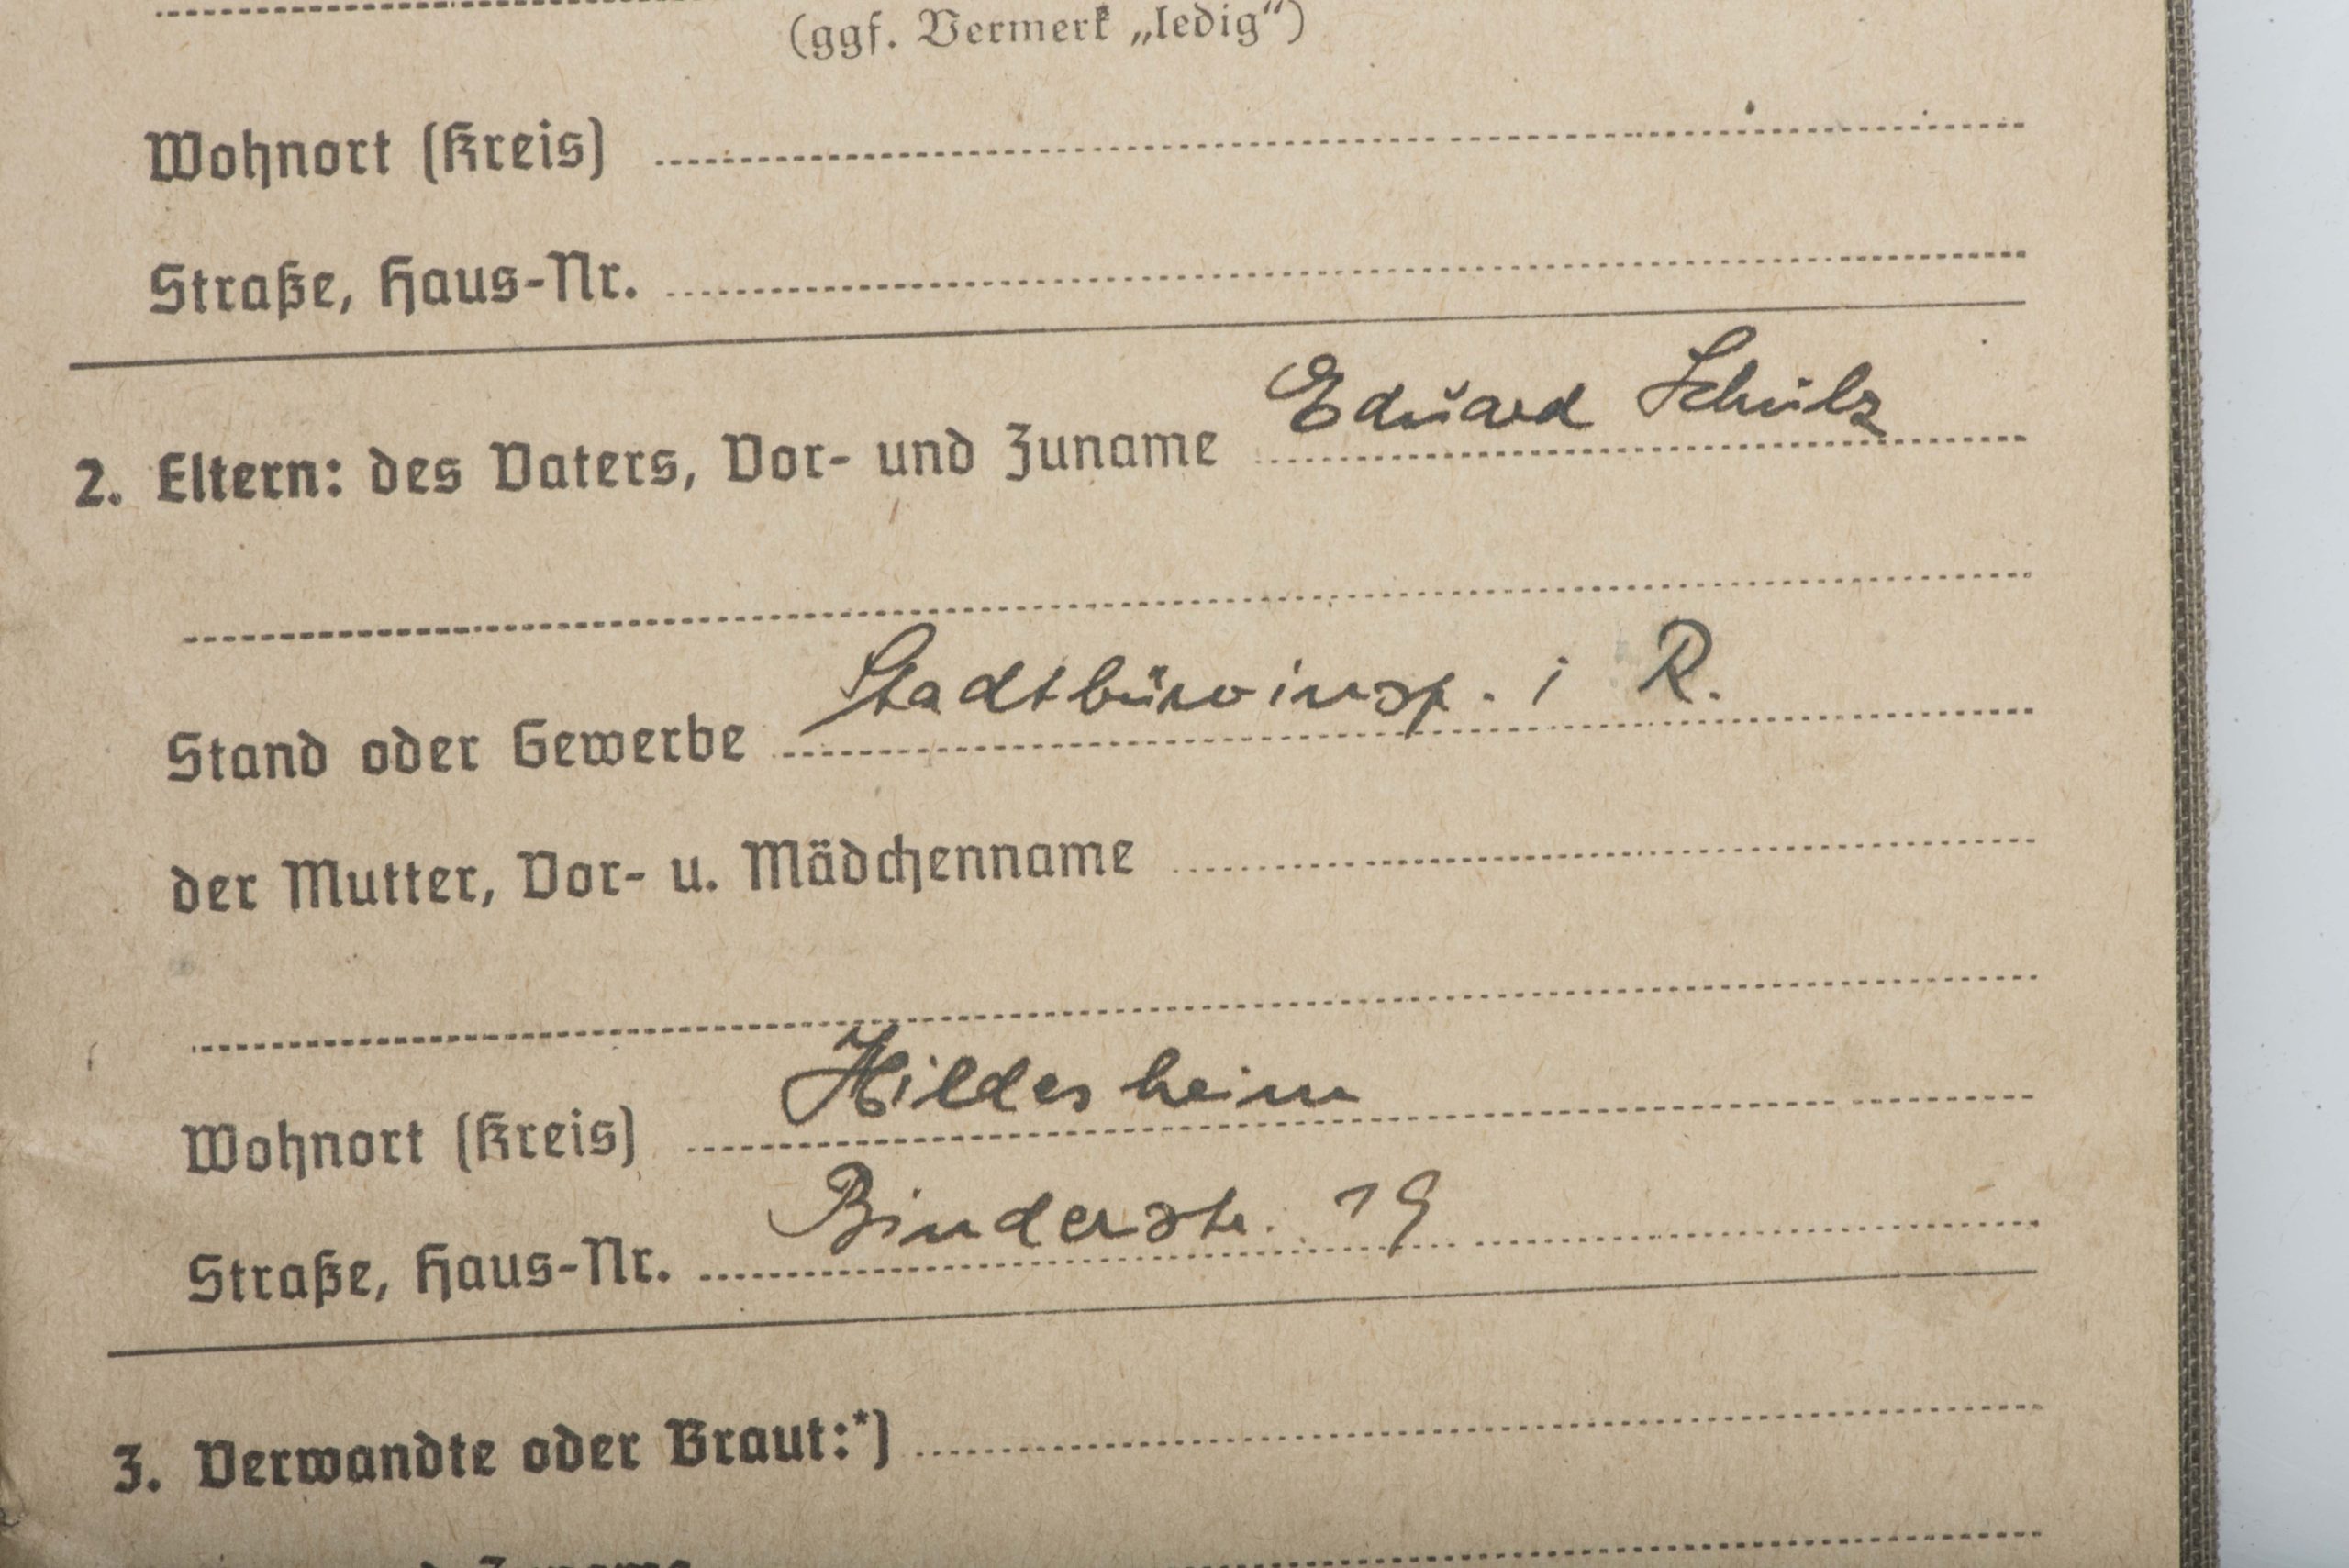 (ggf. Vermerk „ledig“)
Wohnort (Kreis)
Straße, Haus-Nr.
2. Eltern: des Vaters, Vor- und Zuname Eduard Schulz
Stand oder Gewerbe Stadtbüroinsp. i R.
der Mutter, Vor- u. Mädchenname
Wohnort (Kreis) Hildesheim
Straße, Haus-Nr. Binderstr. 19
3. Verwandte oder Braut:*)